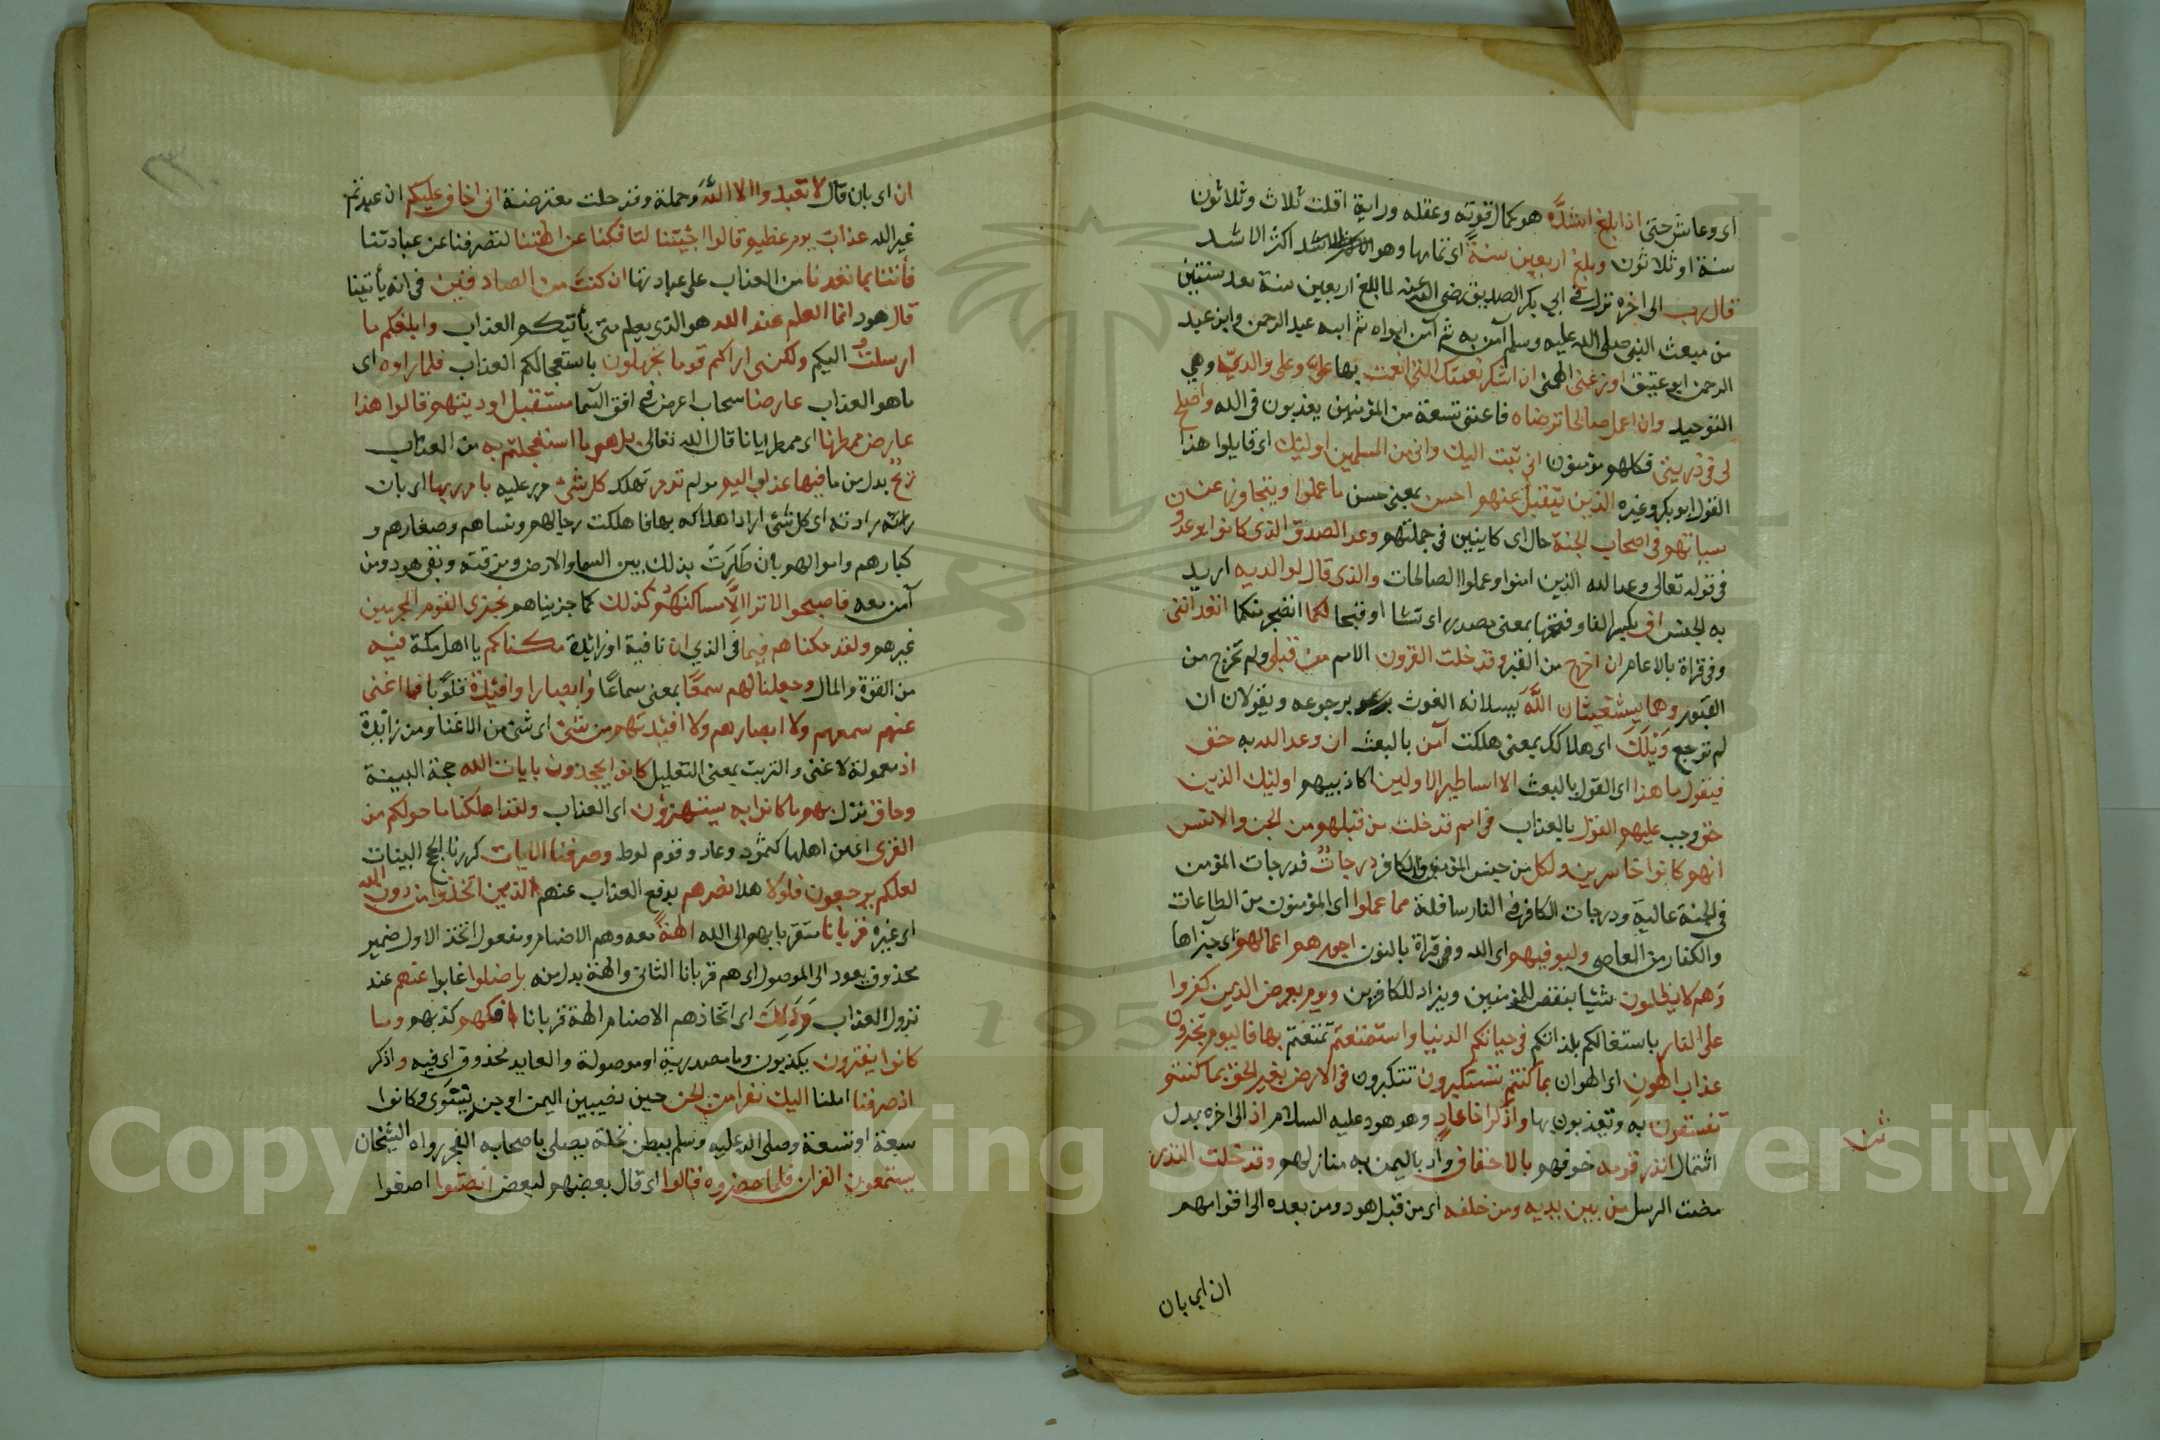 اى وعاش حتى اذا بلغ اشدَّه هو كمال قوته وعقله ورايه اقلت ثلاث وثلاثون
سنة او ثلاثون وبلغ اربعين سنة اى تمامها وهو اكثر الاشد
قال رب الى اخره نزل فى ابى بكر الصديق رضى الله عنه لما بلغ اربعين سنة بعد سنتين
من مبعث النبى صلى الله عليه وسلم آمن به ثم آمن ابواه ثم ابنه عبد الرحمن وابن عبد
الرحمن ابو عتيق اوزعنى الهمنى ان اشكر نعمتك التى انعمت بها علىّ وعلى والدىّ وهى
التوحيد وان اعمل صالحا ترضاه فاعتق تسعة من المؤمنين يعذبون فى الله واصلح
لى فى ذريتى فكلهم مؤمنون انى تبت اليك وانى من المسلمين اولئك اى قايلوا هذا
القول ابو بكر وغيره الذين يتقبل عنهم احسن بمعنى حسن ما عملوا ويتجاوز عن
سياتهم فى اصحاب الجنة حال اى كاينين فى جملتهم وعد الصدق الذى كانوا يوعدون
فى قوله تعالى وعد الله الذين امنوا وعملوا الصالحات والذى قال لوالديه اريد
به الجنس اف بكسر الفا وفتحها بمعنى مصدر اى نتنا او قبحا لكما اتضجر منكما اتعداننى
وفى قراة بالادغام ان اخرج من القبر وقد خلت القرون الامم من قبلى ولم تخرج من
القبور وهما يستغيثان اللَّهَ يسلانه الغوث برجوعه ويقولان ان
لم ترجع وَيْلَكَ اى هلاكك بمعنى هلكت آمن بالبعث ان وعد الله به حق
فيقول ما هذا اى القول بالبعث الا اساطير الاولين اكاذيبهم اوليك الذين
حق وجب عليهم القول بالعذاب فى امم قد خلت من قبلهم من الجن والانس
انهم كانوا خاسرين ولكل من جنس المؤمن والكافر درجاتٌ فدرجات المؤمن
فى الجنة عالية ودرجات الكافر فى النار سافلة مما عملوا اى المؤمنون من الطاعات
والكفار من المعاصى وليوفيهم اى الله وفى قراة بالنون اعمالهم اى جزاها
وَهم لا يظلمون شيئا ينقص للمؤمنين ويزاد للكافرين ويوم يعرض الذين كفروا
على النار باستغالكم بلذاتكم فى حياتكم الدنيا واستمتعتم تمتعتم بها فاليوم تجزون
عذاب الهون اى الهوان بما كنتم تستكبرون تتكبرون فى الارض بغير الحق بما كنتم
تفسقون به وتعذبون بها واذكر اخا عادٍ وهو هود عليه السلام اذ الى اخره بدل
اشتمال انذر قومه خوفهم بالاحقاف واد باليمن به منازلهم وقد خلت النذر
مضت الرسل من بين يديه ومن خلفه اى من قبل هود ومن بعده الى اقوامهم
ان اى بان
ان اى بان قال لا تعبدوا الا اللَّه وجملة وقد خلت معترضة انى اخاف عليكم ان عبدتم
غير الله عذابَ يوم عظيم قالوا اجئتنا لتافكنا عن الهتنا لتصرفنا عن عبادتنا
فأتنا بما تعدنا من العذاب على عبادتها ان كنت من الصادقين فى انه يأتينا
قال هود انما العلم عند الله هو الذى يعلم متى يأتيكم العذاب وابلغكم ما
ارسلت اليكم ولكنى اراكم قوما تجهلون باستعجالكم العذاب فلما راوه اى
ما هو العذاب عارضا سحاب اعرض فى افق السما مستقبل اوديتهم قالوا هذا
عارض ممطرنا اى ممطر ايانا قال الله تعالى بل هو ما استعجلتم به من العذاب
ريحٌ بدل من ما فيها عذاب اليم مولم تدمر تهلك كل شئ مر عليه بامر ربها اى بان
رادته اى كل شئ اراد اهلاكه بها فاهلكت رجالهم ونساهم وصغارهم و
كبارهم واموالهم بان طارت بذلك بين السما والارض ومزقته وبقى هود ومن
آمن معه فاصبحوا لا ترا الا مساكنهم كذلك كما جزيناهم نجزى القوم المجرمين
غيرهم ولقد مكناهم فيما فى الذى ان نافية او زايدة مكناكم يا اهل مكة فيه
من القوة والمال وجعلنا لهم سمعًا بمعنى سماعًا وابصارا وافئدة قلوبًا فما اغنى
عنهم سمعهم ولا ابصارهم ولا افئدتهم من شئ اى شئ من الاغنا ومن زايدة
اذ معمولة لاغنى والتربت بمعنى التعليل كانوا يجحدون بايات الله حججه البينة
وحاق نزل بهم ما كانوا به يستهزؤن اى العذاب ولقد اهلكنا ما حولكم من
القرى اى من اهلها كثمود وعاد وقوم لوط وصرفنا الايات كررنا الحجج البينات
لعلكم يرجعون فلولا هلا نصرهم بدفع العذاب عنهم الذين اتخذوا من دون الله
اى غيره قربانا متقربا بهم الى الله الهةً معه وهم الاصنام ومفعول اتخذ الاول ضمير
محذوف يعود الى الموصول اى هم قربانا الثانى والهة بدل منه بل ضلوا غابوا عنهم عند
نزول العذاب وذلك اى اتخاذهم الاصنام الهة قربانا افكهم كذبهم وما
كانوا يفترون يكذبون وما مصدرية او موصولة والعايد محذوف اى فيه واذكر
اذ صرفنا املنا اليك نفرا من الجن جن نصيبين اليمن او جن نينوى وكانوا
سبعة او تسعة وصلى الله عليه وسلم ببطن نخلة يصلى باصحابه الفجر رواه الشيخان
يستمعون القران فلما حضروه قالوا اى قال بعضهم لبعض انصتوا اصغوا